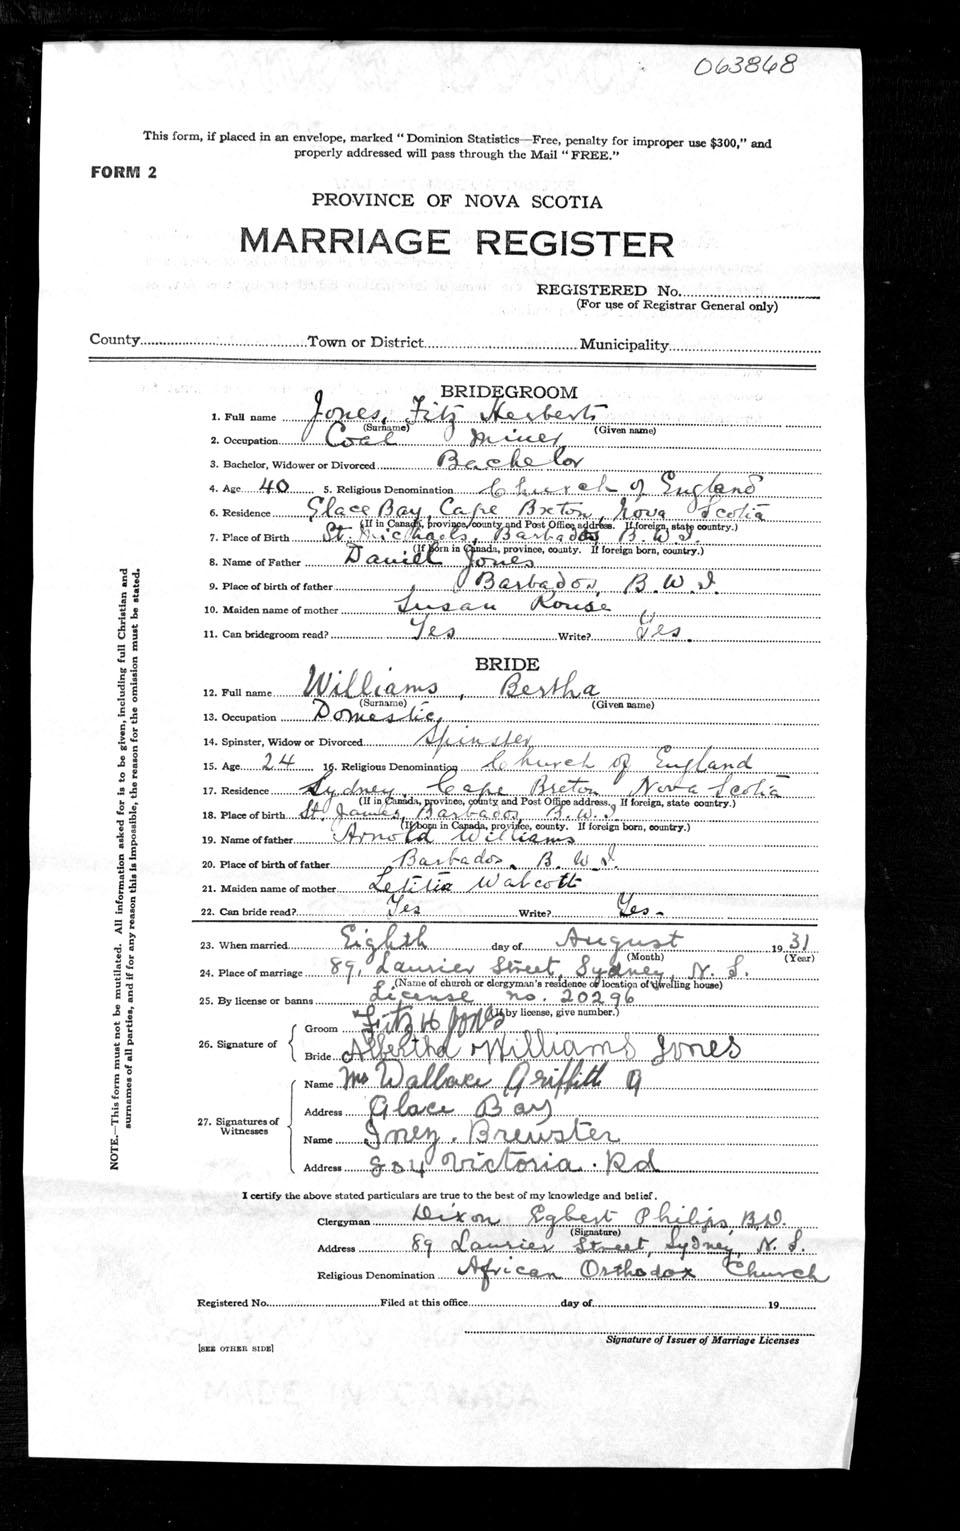 063868
This form, if placed in an envelope, marked "Dominion Statistics—Free, penalty for improper use $300," and
properly addressed will pass through the Mail "FREE."
FORM 2
PROVINCE OF NOVA SCOTIA
MARRIAGE REGISTER
REGISTERED No.
(For use of Registrar General only)
County Town or District Municipality
BRIDEGROOM
1. Full name Jones, Fitz Herbert
(Surname) (Given name)
2. Occupation Coal Miner
3. Bachelor, Widower or Divorced Bachelor
4. Age 40 5. Religious Denomination Church of England
6. Residence Glace Bay, Cape Breton, Nova Scotia
(If in Canada, province, county and Post Office address. If foreign, state country.)
7. Place of Birth St. Michaels, Barbados B.W.I.
(If Born in Canada, province, county. If foreign born, country.)
8. Name of Father Daniel Jones
9. Place of birth of father Barbados, B.W.I.
10. Maiden name of mother Susan Rouse
11. Can bridegroom read? Yes Write? Yes.
BRIDE
12. Full name Williams, Bertha
(Surname) (Given name)
13. Occupation Domestic
14. Spinster, Widow or Divorced Spinster
15. Age 24 16. Religious Denomination Church of England
17. Residence Sydney, Cape Breton Nova Scotia
(If in Canada, province, county and Post Office address. If foreign, state country.)
18. Place of birth St. James, Barbados B.W.I.
(If born in Canada, province, county. If foreign born, country.)
19. Name of father Arnold Williams
20. Place of birth of father Barbados, B.W.I.
21. Maiden name of mother Letitia Walcott
22. Can bride read? Yes Write? Yes-
23. When married Eighth day of August 1931
(Month) (Year)
24. Place of marriage 89, Laurier Street, Sydney, N.S.
(Name of church or clergyman's residence or location of dwelling house)
25. By license or banns License no. 20296
(If by license, give number.)
26. Signature of
Groom Fitz H Jones
Bride Albertha Williams Jones
27. Signatures of Witnesses
Name Mrs Wallace Griffith
Address Glace Bay
Name Inez. Brewster
Address 204 Victoria. Rd
I certify the above stated particulars are true to the best of my knowledge and belief.
Clergyman Dixon Egbert Philips, B.D.
(Signature)
Address 89 Laurier Street, Sydney, N.S.
Religious Denomination African Orthodox Church
Registered No. Filed at this office day of 19
Signature of Issuer of Marriage Licenses
[SEE OTHER SIDE]
NOTE.—This form must not be mutilated. All information asked for is to be given, including full Christian and
surnames of all parties, and if for any reason this is impossible, the reason for the omission must be stated.